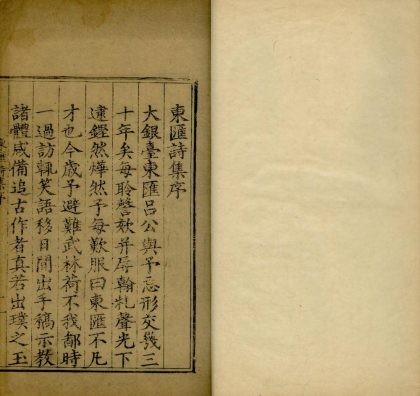 東滙詩集序
大銀臺東滙吕公與予忘形交幾三
十年矣每聆謦欬并辱翰札聲光下
逮鏗然燁然予每歎服曰東滙不凡
才也今歲予避難武林荷不我鄙時
一過訪輒笑語移日間出手稿示教
諸體咸備追古作者真若出璞之玉